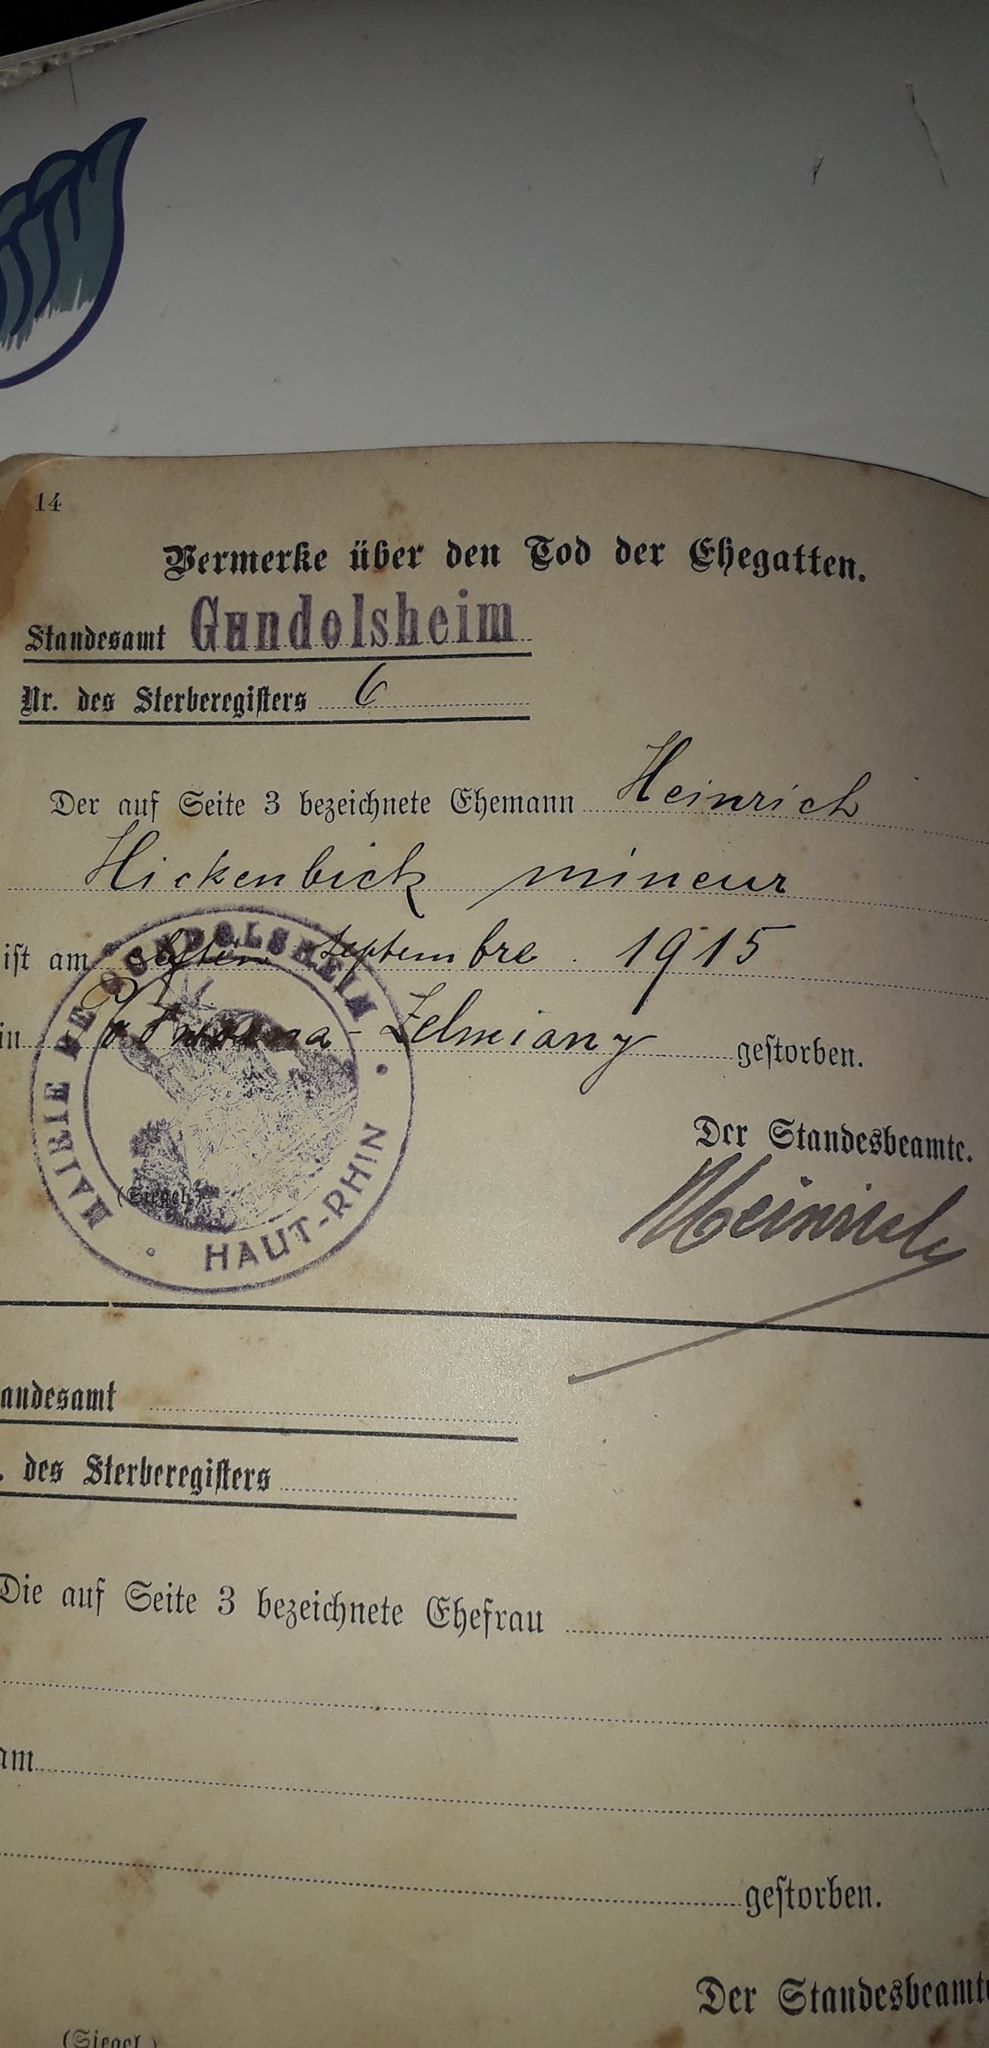 14
Vermerke über den Tod der Ehegatten.
Standesamt Gundolsheim
Nr. des Sterberegisters 6
Der auf Seite 3 bezeichnete Ehemann Heinrich
Hickenbick mineur
ist am septembre 1915
in Zelmiany gestorben.
MAIRIE DE GUNDOLSHEIM
HAUT-RHIN
(Siegel.)
Der Standesbeamte.
andesamt
. des Sterberegisters
Die auf Seite 3 bezeichnete Ehefrau
am
gestorben.
Der Standesbeamte
(Siegel.)